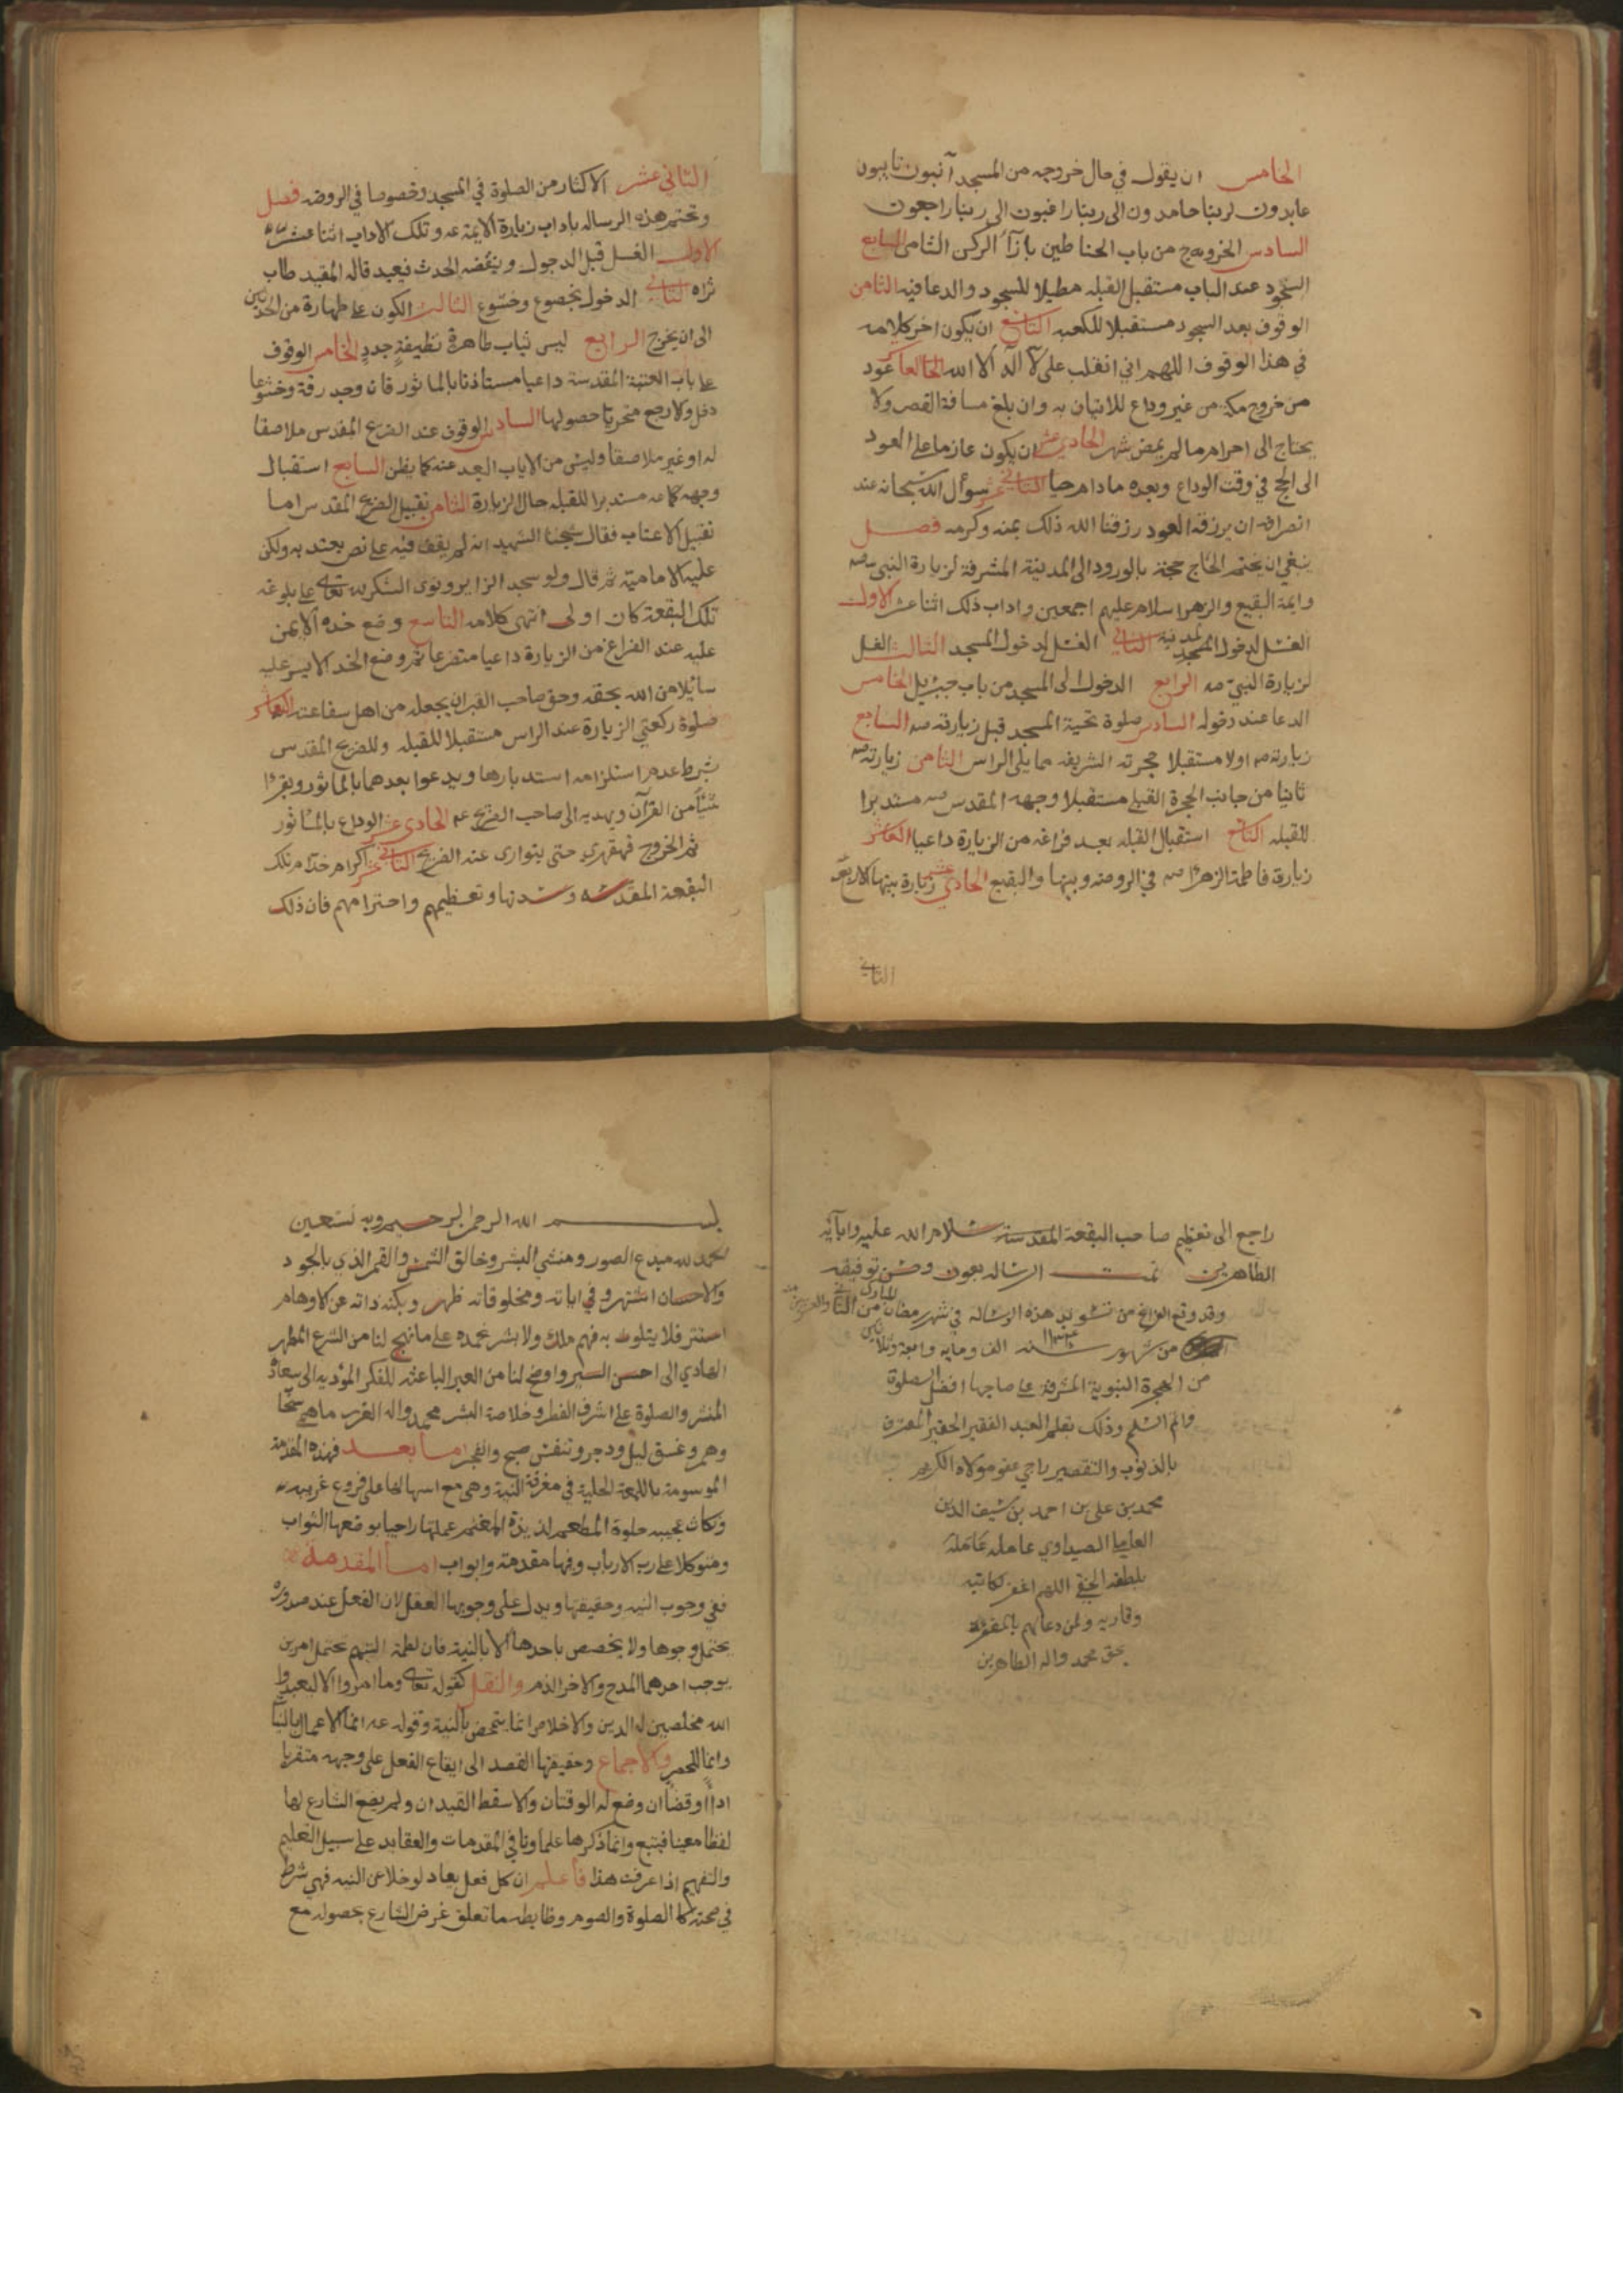 الخامس ان يقول في حال خروجه من المسجد آئبون تايبون
عابدون لربنا حامدون الى ربنا راغبون الى ربنا راجعون
السادس الخروج من باب الحناطين بازآء الركن الشامي السابع
السجود عند الباب مستقبل القبله مطيلا للسجود والدعا فيه الثامن
الوقوف بعد السجود مستقبلا للكعبه التاسع ان يكون اخر كلامه
في هذا الوقوف اللهم اني انقلب على لا اله الا الله العاشر عود
من خروج مكة من غير وداع للاتيان به وان بلغ مسافة القصر ولا
يحتاج الى احرام ما لم يمض شهر الحادي عشر ان يكون عازما على العود
الى الحج في وقت الوداع وبعده ما دام حيا الثاني عشر سوأل الله سبحانه عند
انصرافه ان يرزقه العود رزقنا الله ذلك بمنه وكرمه فصل
ينبغي ان يختم الحاج حجه بالورود الى المدينة المشرفة لزيارة النبي صه
وايمة البقيع والزهرا سلام عليهم اجمعين واداب ذلك اثنا عشر الاول
الغسل لدخول المدينة الثاني الغسل لدخول المسجد الثالث الغسل
لزيارة النبي صه الرابع الدخول الى المسجد من باب جبرئيل الخامس
الدعا عند دخوله السادس صلوة تحية المسجد قبل زيارته صه السابع
زيارته صه اولا مستقبلا حجرته الشريفه مما يلي الراس الثامن زيارته صه
ثانيا من جانب الحجرة القبلي مستقبلا وجهه المقدس صه مستدبرا
للقبله التاسع استقبال القبله بعد فراغه من الزيارة داعيا العاشر
زيارة فاطمة الزهرا صه في الروضه وبيتها والبقيع الحادي عشر زيارة بيتها الاربعة
الثاني
الثاني عشر الاكثار من الصلوة في المسجد وخصوصا في الروضه فصل
ونختم هذه الرساله باداب زيارة الايمة عه وتلك الاداب اثنا عشر
الاول الغسل قبل الدخول وينقضه الحدث فيعيد قاله المفيد طاب
ثراه الثاني الدخول بخضوع وخشوع الثالث الكون على طهارة من الحدثين
الى ان يخرج الرابع لبس ثياب طاهرة نظيفة جدد الخامس الوقوف
على باب العتبة المقدسة داعيا مستاذنا بالماثور فان وجد رقة وخشوعا
دخل ولا رجع متحريا حصولها السادس الوقوف عند الضريح المقدس ملاصقا
له او غير ملاصقا وليس من الاداب البعد عنه كما يظن السابع استقبال
وجهه كما عه مستدبرا للقبله حال الزيارة الثامن تقبيل الضريح المقدس اما
تقبيل الاعتاب فقال شيخنا الشهيد انه لم يقف فيه على نص يعتد به ولكن
عليه الامامية ثم قال ولو سجد الزاير ونوى الشكر لله تعالى على بلوغه
تلك البقعة كان اولى انتهى كلامه التاسع وضع خده الايمن
عليه عند الفراغ من الزيارة داعيا متضرعا ثم وضع الخد الايسر عليه
سائلا من الله بحقه وحق صاحب القبر ان يجعله من اهل شفاعته العاشر
صلوة ركعتي الزيارة عند الراس مستقبلا للقبله وللضريح المقدس
بشرط عدم استلزامه استدبارها ويدعوا بعدهما بالماثور ويقرا
شيئا من القرآن ويهديه الى صاحب الضريح عه الحادي عشر الوداع بالماثور
ثم الخروج قهقهرى حتى يتوارى عنه الضريح الثاني عشر اكرام خدام تلك
البقعة المقدسه وسدنتها وتعظيمهم واحترامهم فان ذلك
راجع الى تعظيم صاحب البقعة المقدسة سلام الله عليه وابآئه
الطاهرين تمت الرساله بعون وحسن توفيقه
وقد وقع الفراغ من تسويد هذه الرساله في شهر رمضان المبارك من الثاني والعشرين منه
من شهور سنه ١١٣٤ الف ومايه واربعة وثلاثين
من الهجرة النبوية المشرفة على صاحبها افضل الصلوة
واتم السلم وذلك بقلم العبد الفقير الحقير المعترف
بالذنوب والتقصير راجي عفو مولاه الكريم
محمد بن علي بن احمد بن سيف الدين
العاملي الصيداوي عامله عامله
بلطفه الخفي اللهم اغفر لكاتبه
وقاريه ولمن دعا لهم بالمغفرة
بحق محمد واله الطاهرين
بسم الله الرحمن الرحيم وبه نستعين
الحمد لله مبدع الصور ومنشي البشر وخالق الشمس والقمر الذي بالجود
والاحسان اشتهر وفي اياته ومخلوقاته ظهر وبكنه ذاته عن الاوهام
استتر فلا يتلوث به فهم ملك ولا بشر نحمده على ما نهج لنا من الشرع المطهر
الهادي الى احسن السير واوضح لنا من العبر الباعثه للفكر المؤديه الى سعادة
المنشر والصلوة على اشرف الفطر وخلاصة البشر محمد واله الغرر ما همي سحاب
وهمر وغسق ليل ودجر وتنفس صبح وانفجر اما بعد فهذه المقدمة
الموسومة باللمعة الجلية في معرفة النية وهي مع اسهالها على فروع غريبه
ونكات عجيبه حلوة المطعم لذيذة المغنم عملتها راجيا بوضعها الثواب
ومتوكلا على رب الارباب وفيها مقدمة وابواب اما المقدمة
ففي وجوب النيه وحقيقتها ويدل على وجوبها العقل لان الفعل عند صدوره
يحتمل وجوها ولا يخصص باحدها الا بالنية فان لطمة اليتيم تحتمل امرين
يوجب احدهما المدح والاخر الذم والنقل كقوله تعالى وما امروا الا ليعبدوا
الله مخلصين له الدين والاخلاص انما يتمحض بالنية وقوله عه انما الاعمال بالنيات
وانما للحصر والاجماع وحقيقتها القصد الى ايقاع الفعل على وجهه متقربا
اداءً او قضاءً ان وضع له الوقتان والا سقط القيدان ولم يضع الشارع لها
لفظا معينا فيتبع وانما ذكرها علماونا في المقدمات والعقايد على سبيل التعليم
والتفهيم اذا عرفت هذا فاعلم ان كل فعل يعاد لو خلا عن النيه فهي شرط
في صحته كالصلوة والصوم وضابطه ما تعلق غرض الشارع بحصوله مع